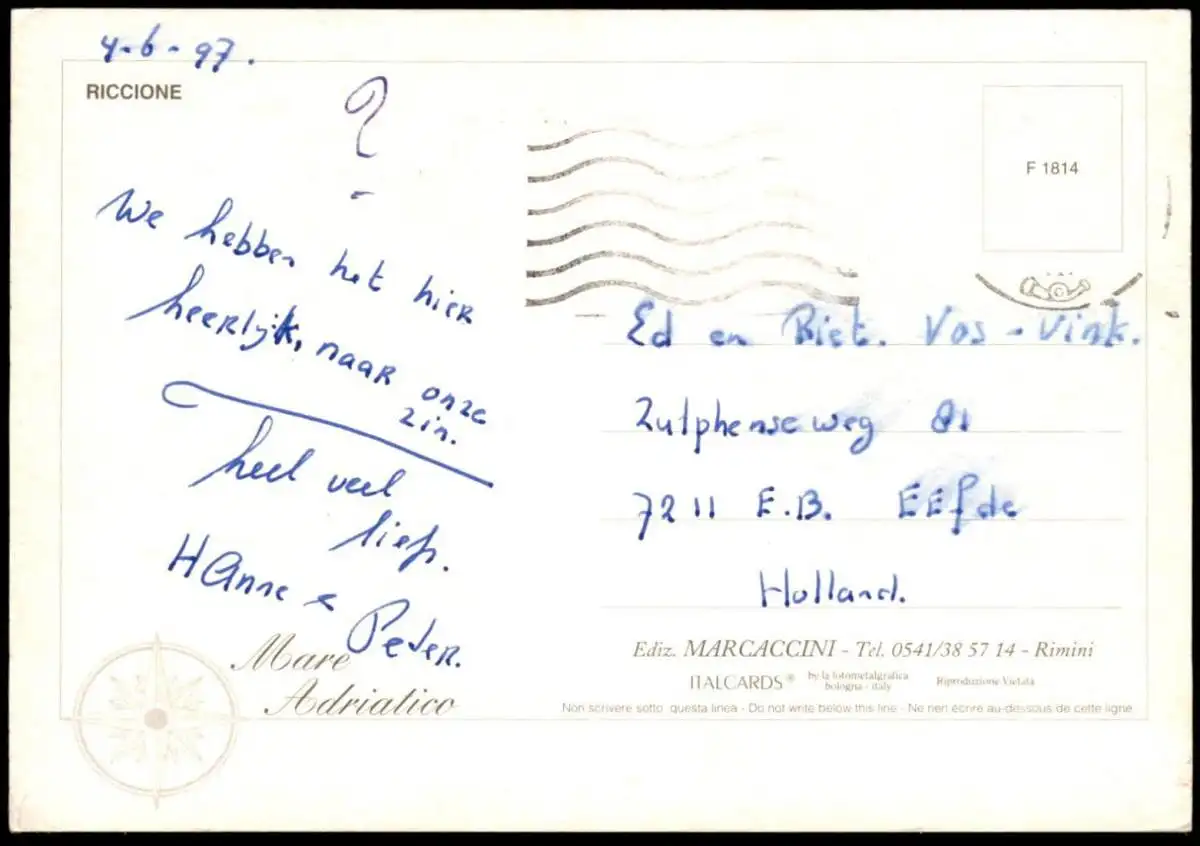 4-6-97.
RICCIONE
?
We hebben het hier
heerlijk, naar onze
zin.
heel veel
liefs.
Hanne &
Peter.
Mare
Adriatico
F 1814
Ed en Biet. Vos - Vink.
Zutphenseweg 81
7211 E.B. EEfde
Holland.
Ediz. MARCACCINI - Tel. 0541/38 57 14 - Rimini
ITALCARDS® by la fotometalgrafica
bologna - italy
Riproduzione Vietata
Non scrivere sotto questa linea - Do not write below this line - Ne rien écrire au-dessous de cette ligne